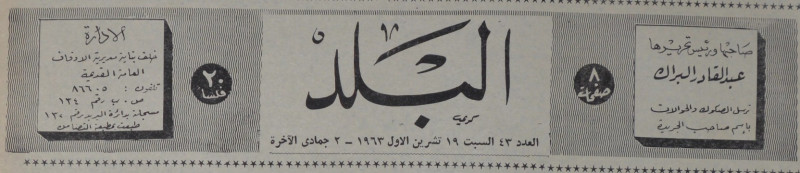 صاحبها ورئيس تحريرها
عبدالقادر البراك
ترسل الصكوك والحوالات
باسم صاحب الجريدة
٨
صفحات
البلد
كريمي
العدد ٤٣ السبت ١٩ تشرين الاول ١٩٦٣ – ٢ جمادى الآخرة
٢٠
فلسا
الادارة
خلف بناية مديرية الاوقاف
العامة القديمة
تلفون : ٨٦٦٠٥
ص . ب رقم ١٢٤
مسجلة بدائرة البريد رقم ١٢٠
طبعت بمطبعة التضامن